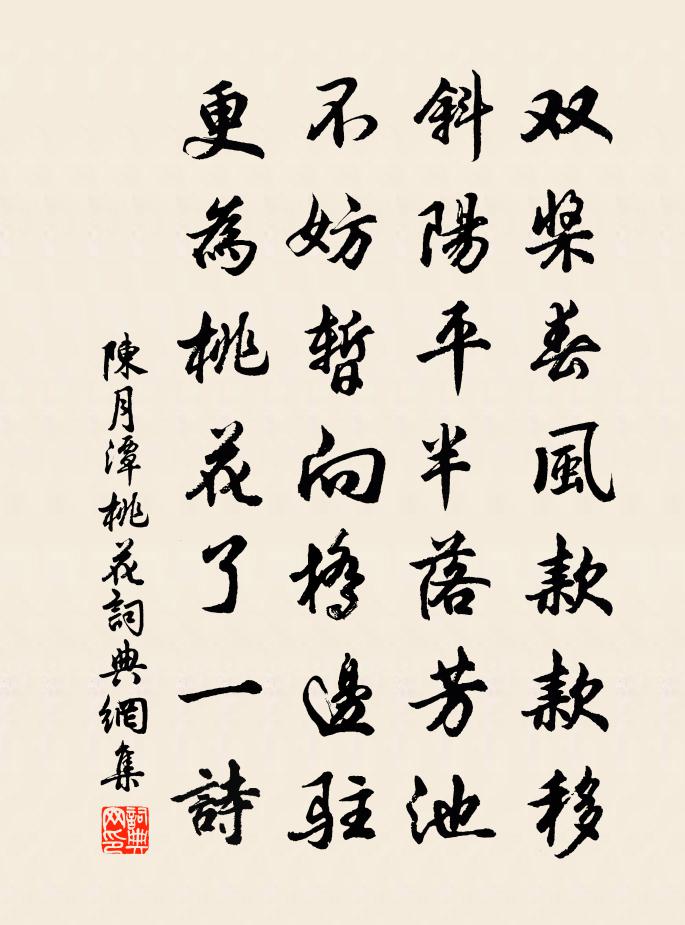 双槳春風款款移
斜陽平半落芳池
不妨暫向橋邊駐
更為桃花了一詩
陳月潭桃花詞典網集
詞典网印